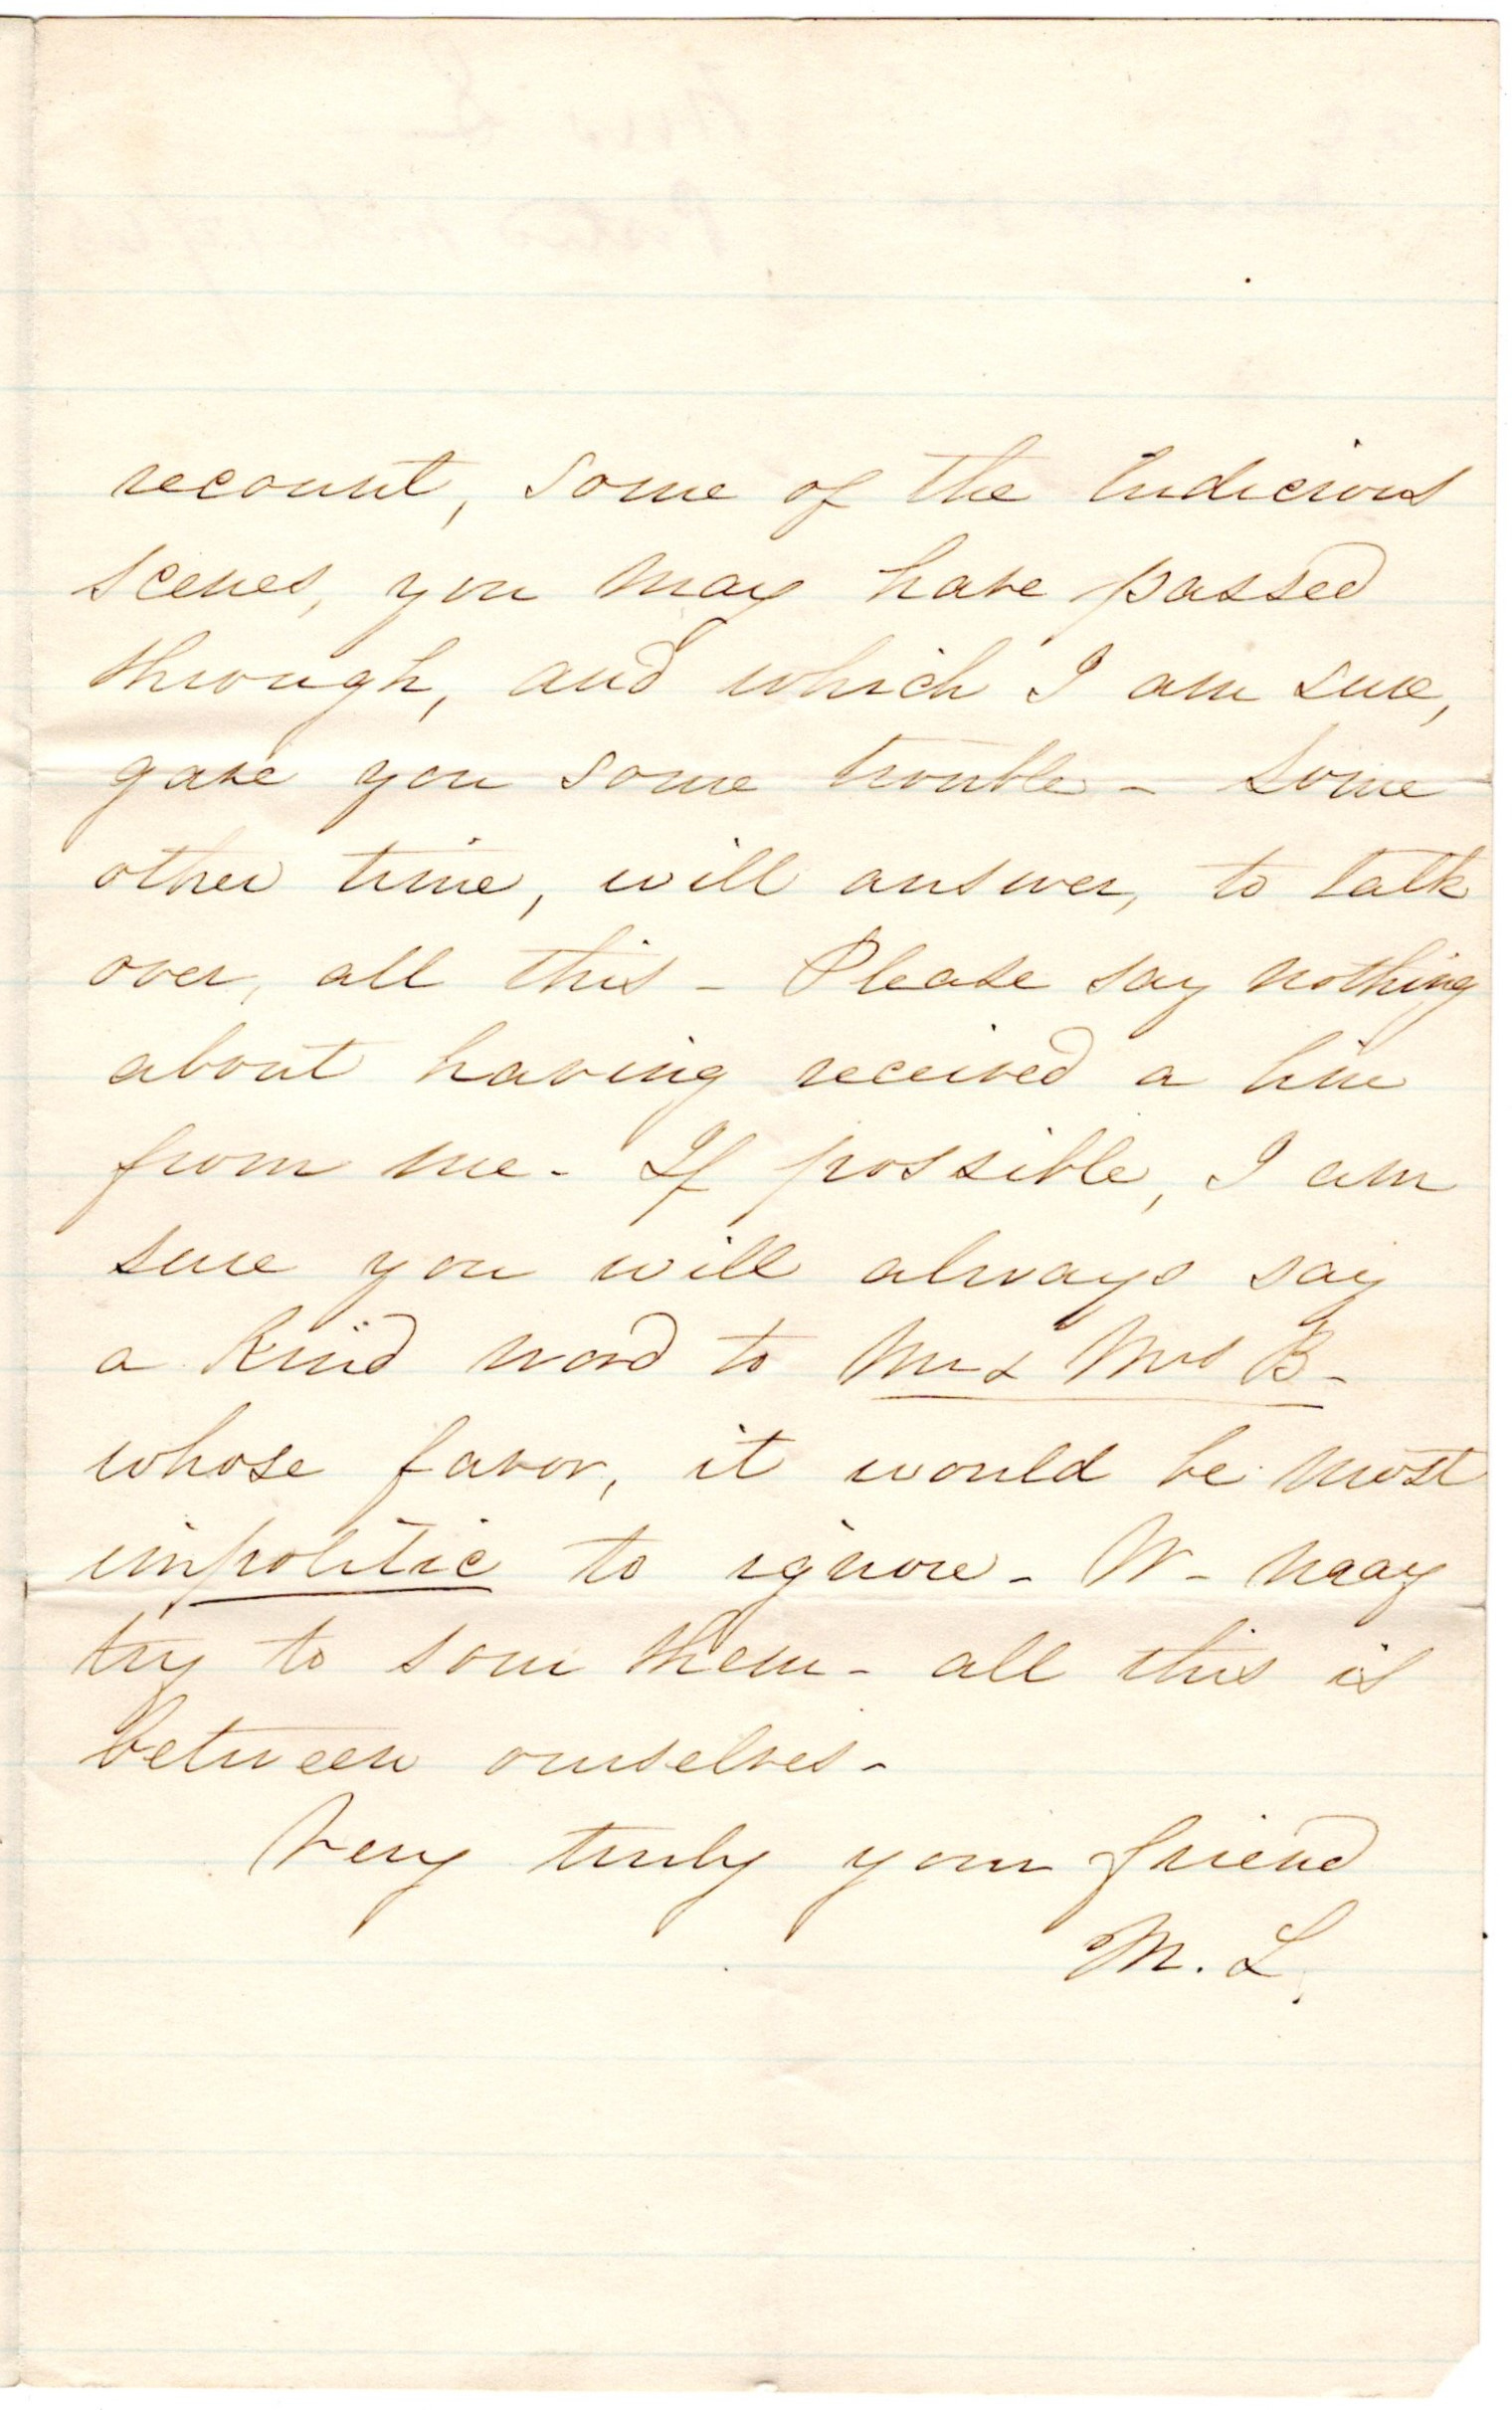 recount, some of the ludicrous
scenes, you may have passed
through, and which I am sure,
gave you some trouble - Some
other time, will answer, to talk
over, all this - Please say nothing
about having received a line
from me - If possible, I am
sure you will always say
a kind word to Mr & Mrs B -
whose favor, it would be most
impolitic to ignore - W - may
try to sour them - all this is
between ourselves -
Very truly your friend
M. L.